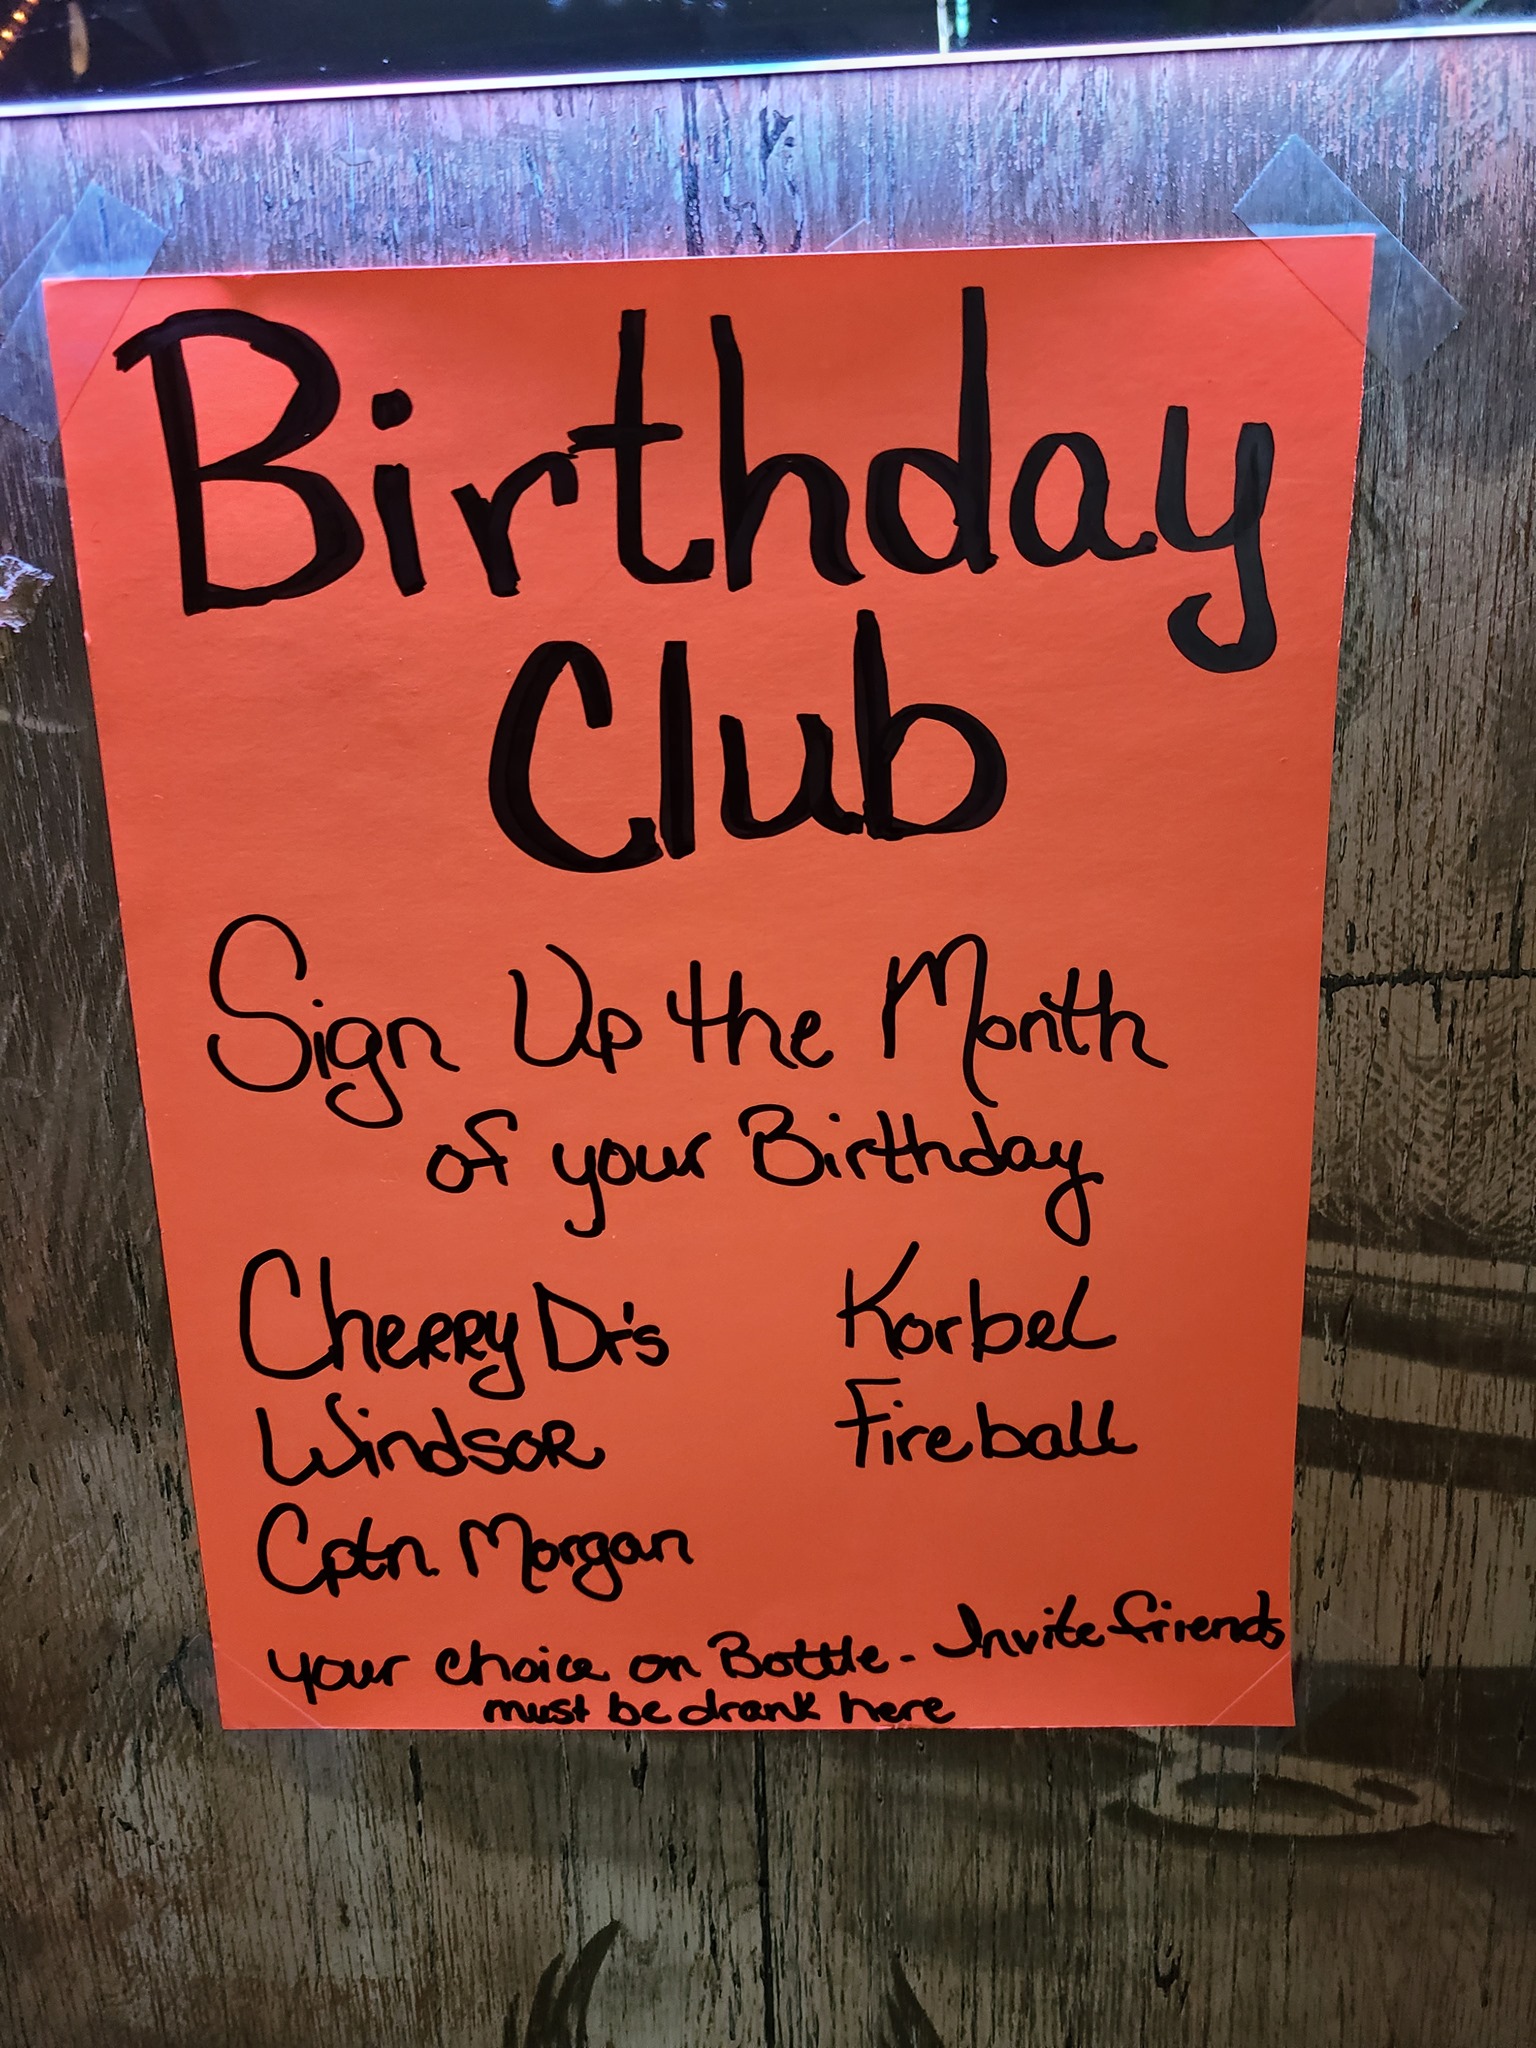 Birthday
Club
Sign Up the Month
of your Birthday
Cherry Dr's Korbel
Windsor Fireball
Cptn Morgan
your choice on Bottle - Invite friends
must be drank here